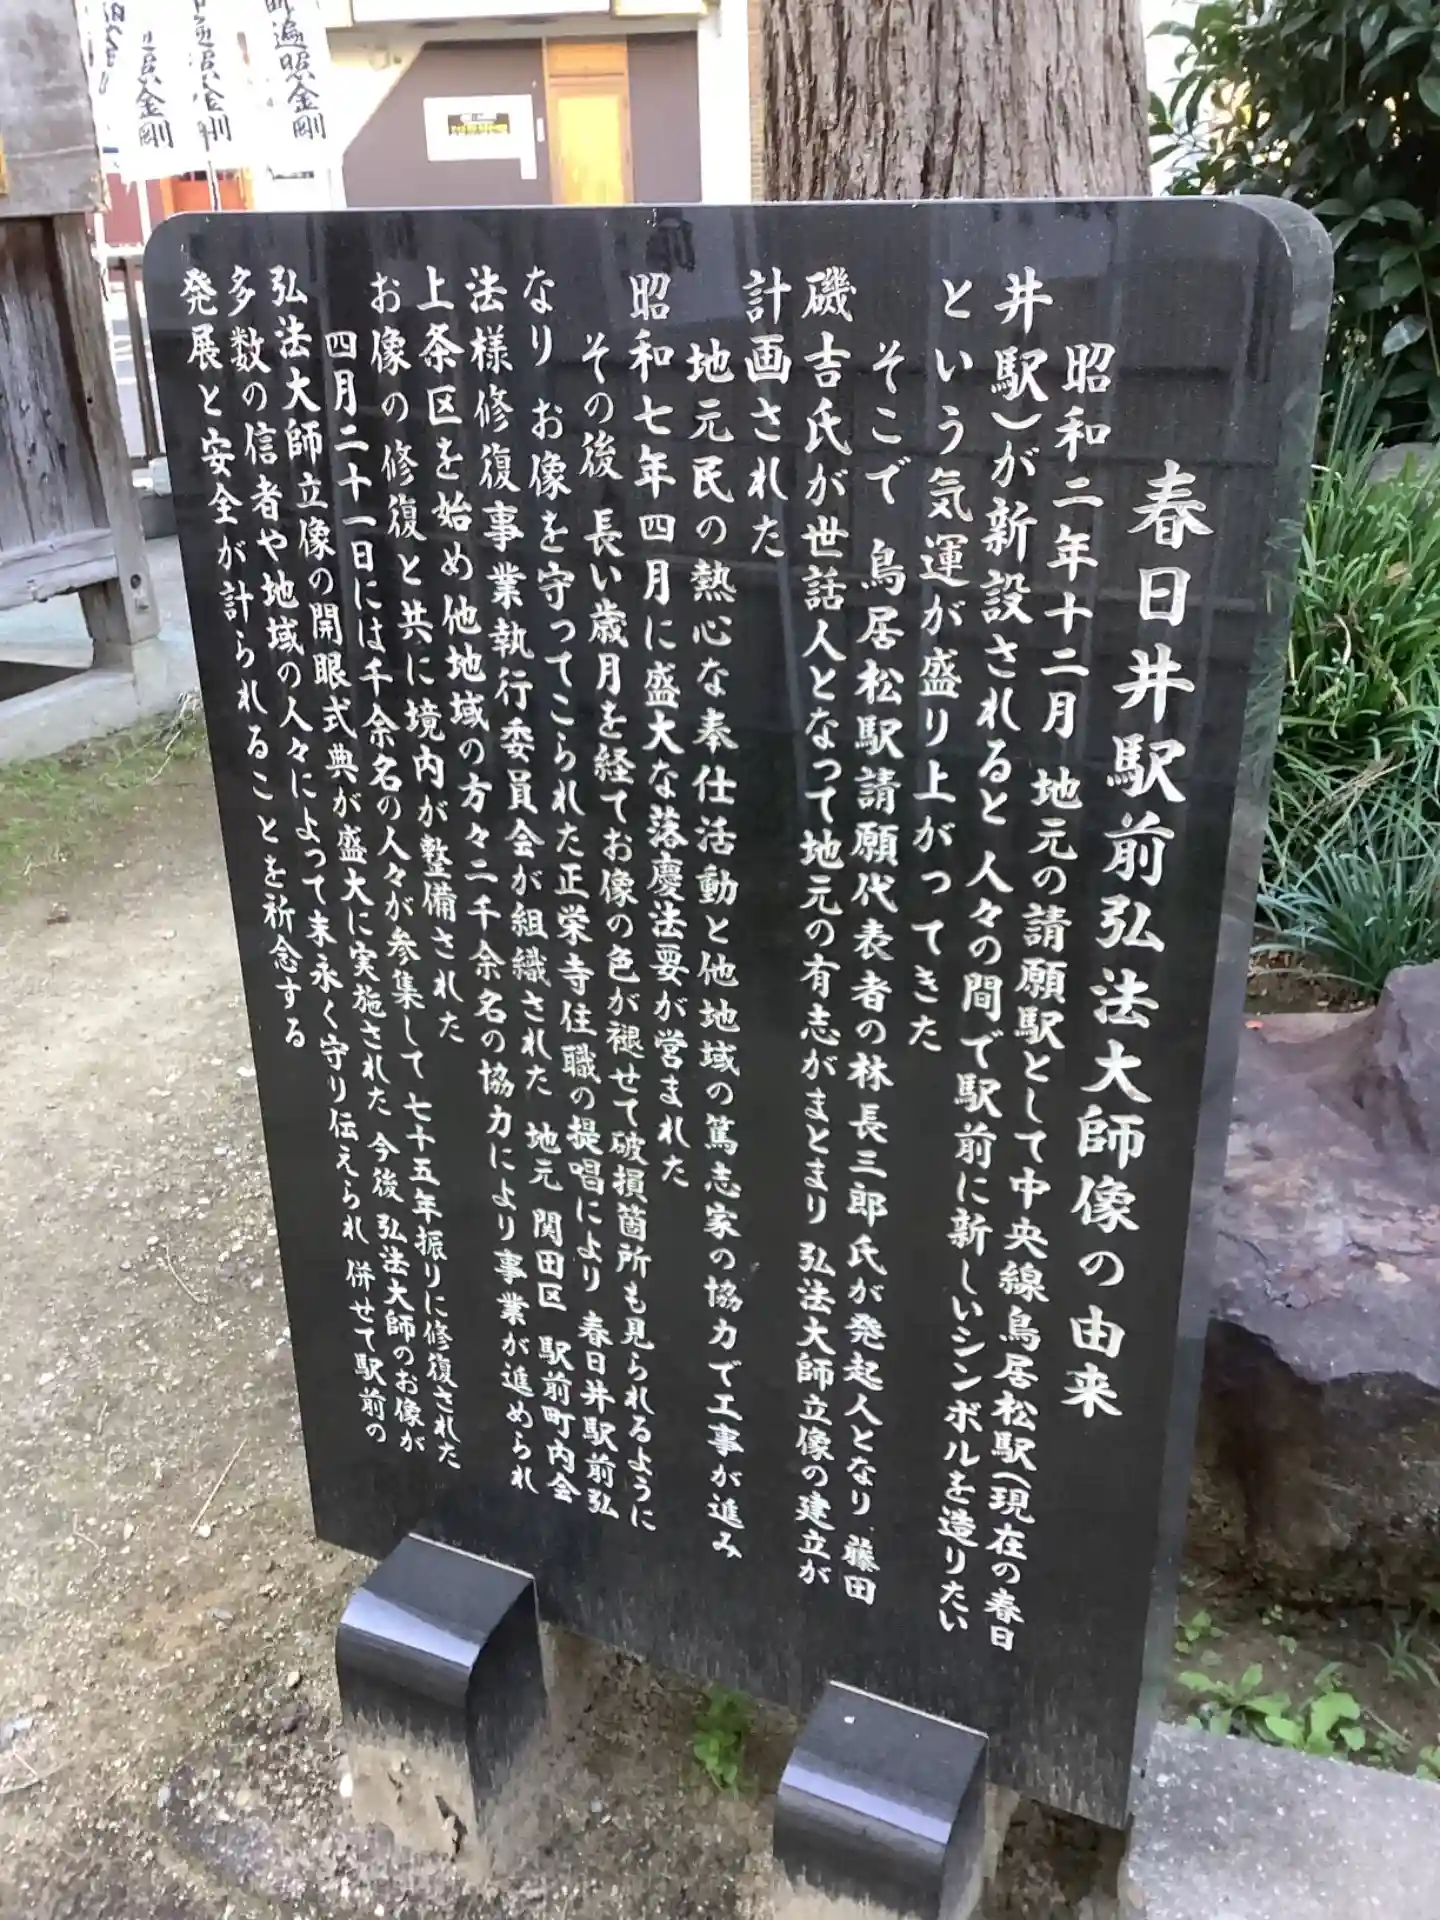 春日井駅前弘法大師像の由来
昭和二年十二月 地元の請願駅として中央線鳥居松駅(現在の春日
井駅)が新設されると 人々の間で駅前に新しいシンボルを造りたい
という気運が盛り上がってきた
そこで 鳥居松駅請願代表者の林長三郎氏が発起人となり 藤田
磯吉氏が世話人となって地元の有志がまとまり 弘法大師立像の建立が
計画された
地元民の熱心な奉仕活動と他地域の篤志家の協力で工事が進み
昭和七年四月に盛大な落慶法要が営まれた
その後 長い歳月を経てお像の色が褪せて破損箇所も見られるように
なり お像を守ってこられた正栄寺住職の提唱により 春日井駅前弘
法様修復事業執行委員会が組織された 地元 関田区 駅前町内会
上条区を始め他地域の方々二千余名の協力により事業が進められ
お像の修復と共に境内が整備された
四月二十一日には千余名の人々が参集して 七十五年振りに修復された
弘法大師立像の開眼式典が盛大に実施された 今後 弘法大師のお像が
多数の信者や地域の人々によって末永く守り伝えられ 併せて駅前の
発展と安全が計られることを祈念する
遍照金剛
照金剛
金剛